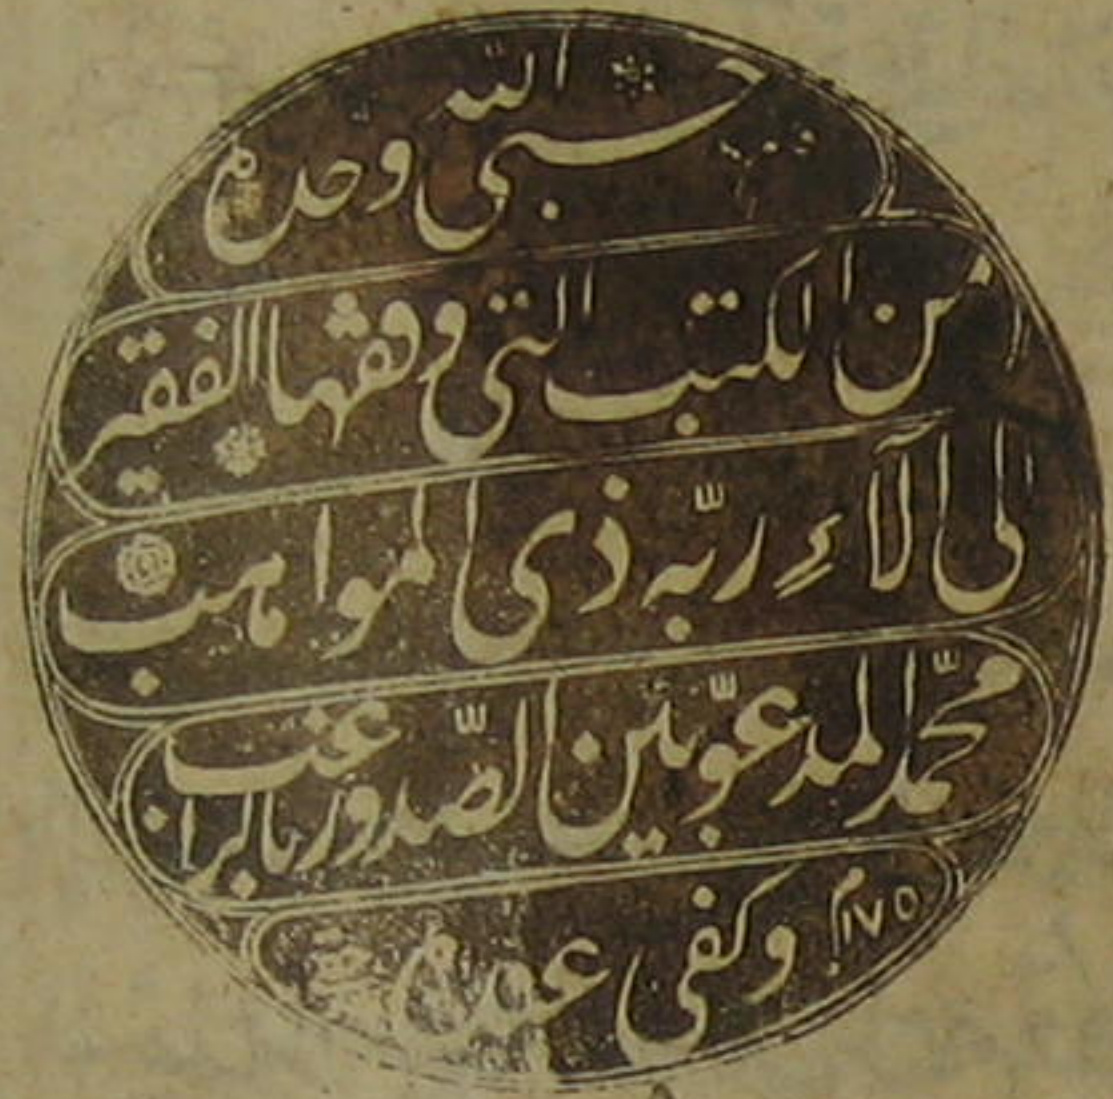 حسبى الله وحده
من الكتب التى وقفها الفقير
الى آلاء ربّه ذى المواهب
محمّد المدعوّ بين الصّدور بالراغب
١٧٥ وكفى عبده